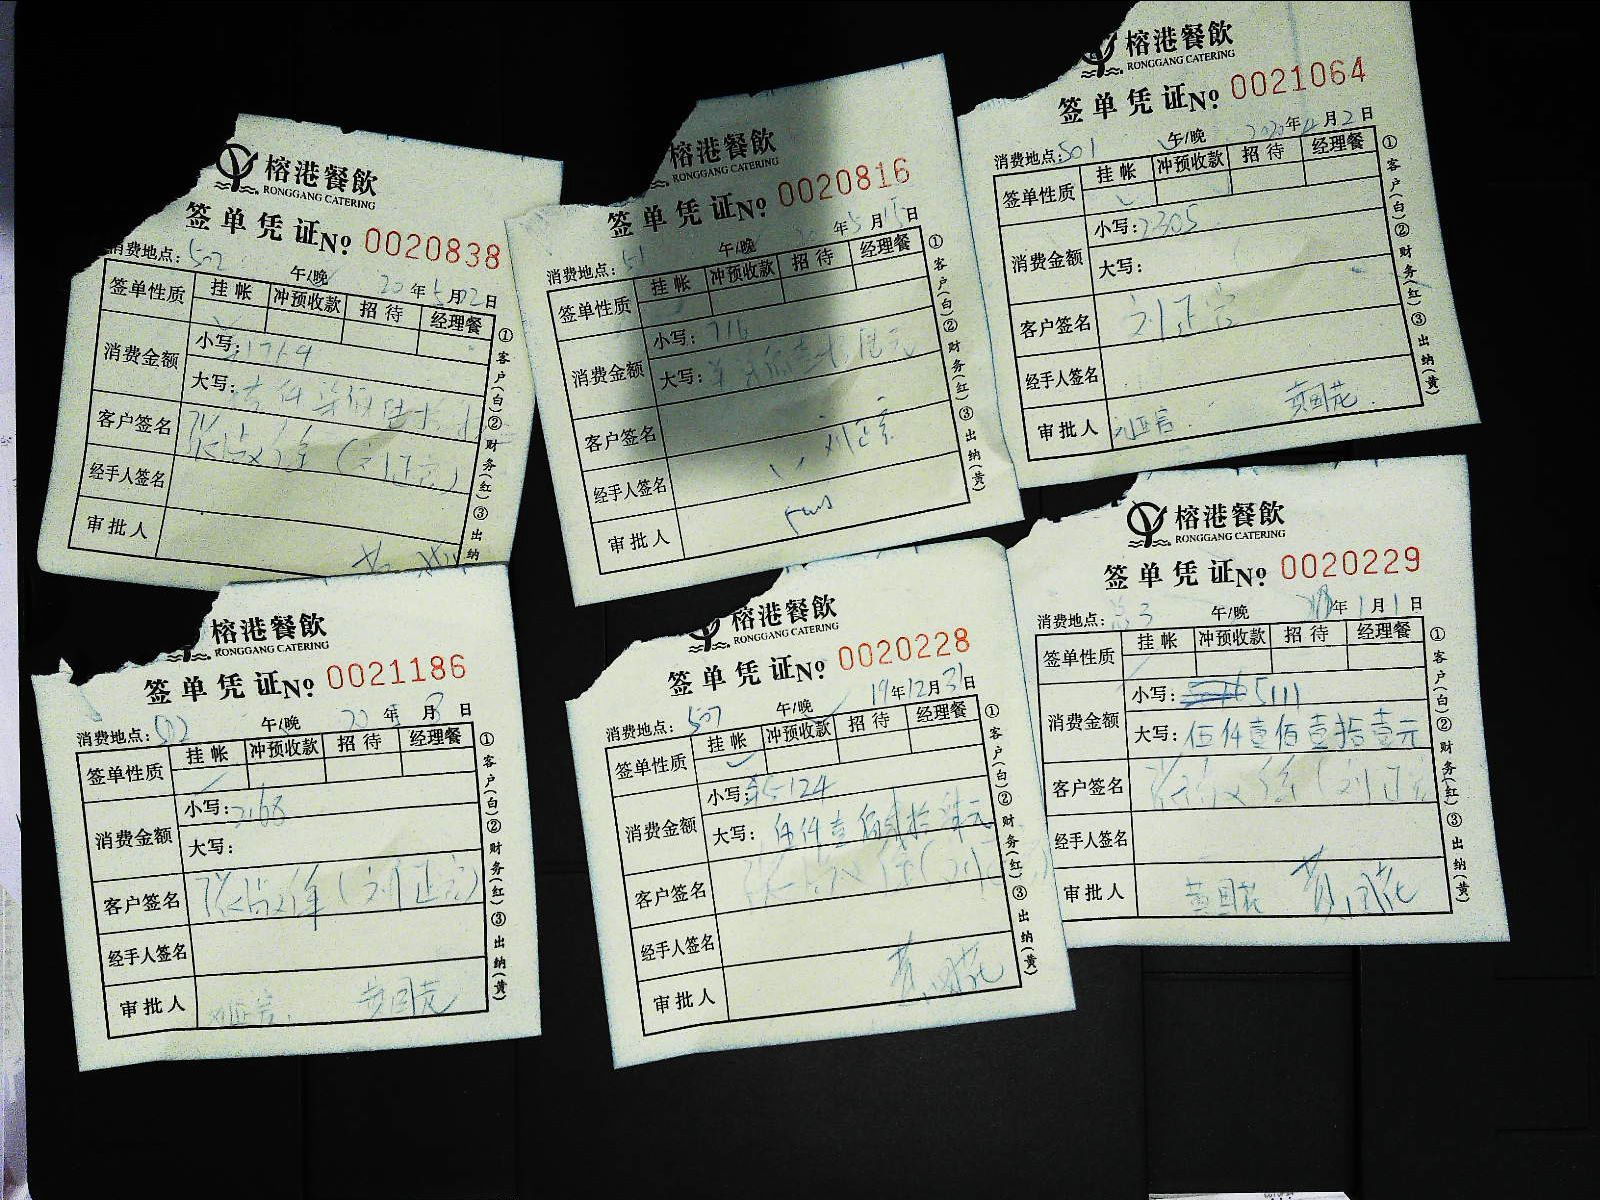 榕港餐飲
RONGGANG CATERING
签单凭证No 0020838
消费地点: 502 午/晚 20年5月02日
签单性质 挂帐 冲预收款 招待 经理餐
消费金额 小写: 1764
大写:
客户签名 (刘正言)
经手人签名
审批人
①客户(白)②财务(红)③出纳
榕港餐飲
RONGGANG CATERING
签单凭证No 0020816
消费地点: 午/晚 年5月日
签单性质 挂帐 冲预收款 招待 经理餐
消费金额 小写: 716
大写:
客户签名 刘正言
经手人签名
审批人
①客户(白)②财务(红)③出纳(黄)
榕港餐飲
RONGGANG CATERING
签单凭证No 0021064
消费地点: 501 午/晚 2020年4月2日
签单性质 挂帐 冲预收款 招待 经理餐
消费金额 小写: 2305
大写:
客户签名 刘正言
经手人签名
审批人 刘正言 黄国花
①客户(白)②财务(红)③出纳(黄)
榕港餐飲
RONGGANG CATERING
签单凭证No 0021186
消费地点: 502 午/晚 20年月8日
签单性质 挂帐 冲预收款 招待 经理餐
消费金额 小写: 2168
大写:
客户签名 (刘正言)
经手人签名
审批人 刘正言 黄国花
①客户(白)②财务(红)③出纳(黄)
榕港餐飲
RONGGANG CATERING
签单凭证No 0020228
消费地点: 507 午/晚 19年12月31日
签单性质 挂帐 冲预收款 招待 经理餐
消费金额 小写: 5124
大写: 伍仟壹佰贰拾元
客户签名
经手人签名
审批人 黄国花
①客户(白)②财务(红)③出纳(黄)
榕港餐飲
RONGGANG CATERING
签单凭证No 0020229
消费地点: 3 午/晚 年1月1日
签单性质 挂帐 冲预收款 招待 经理餐
消费金额 小写: 5111
大写: 伍仟壹佰壹拾壹元
客户签名 (刘正言
经手人签名
审批人 黄国花 黄国花
①客户(白)②财务(红)③出纳(黄)